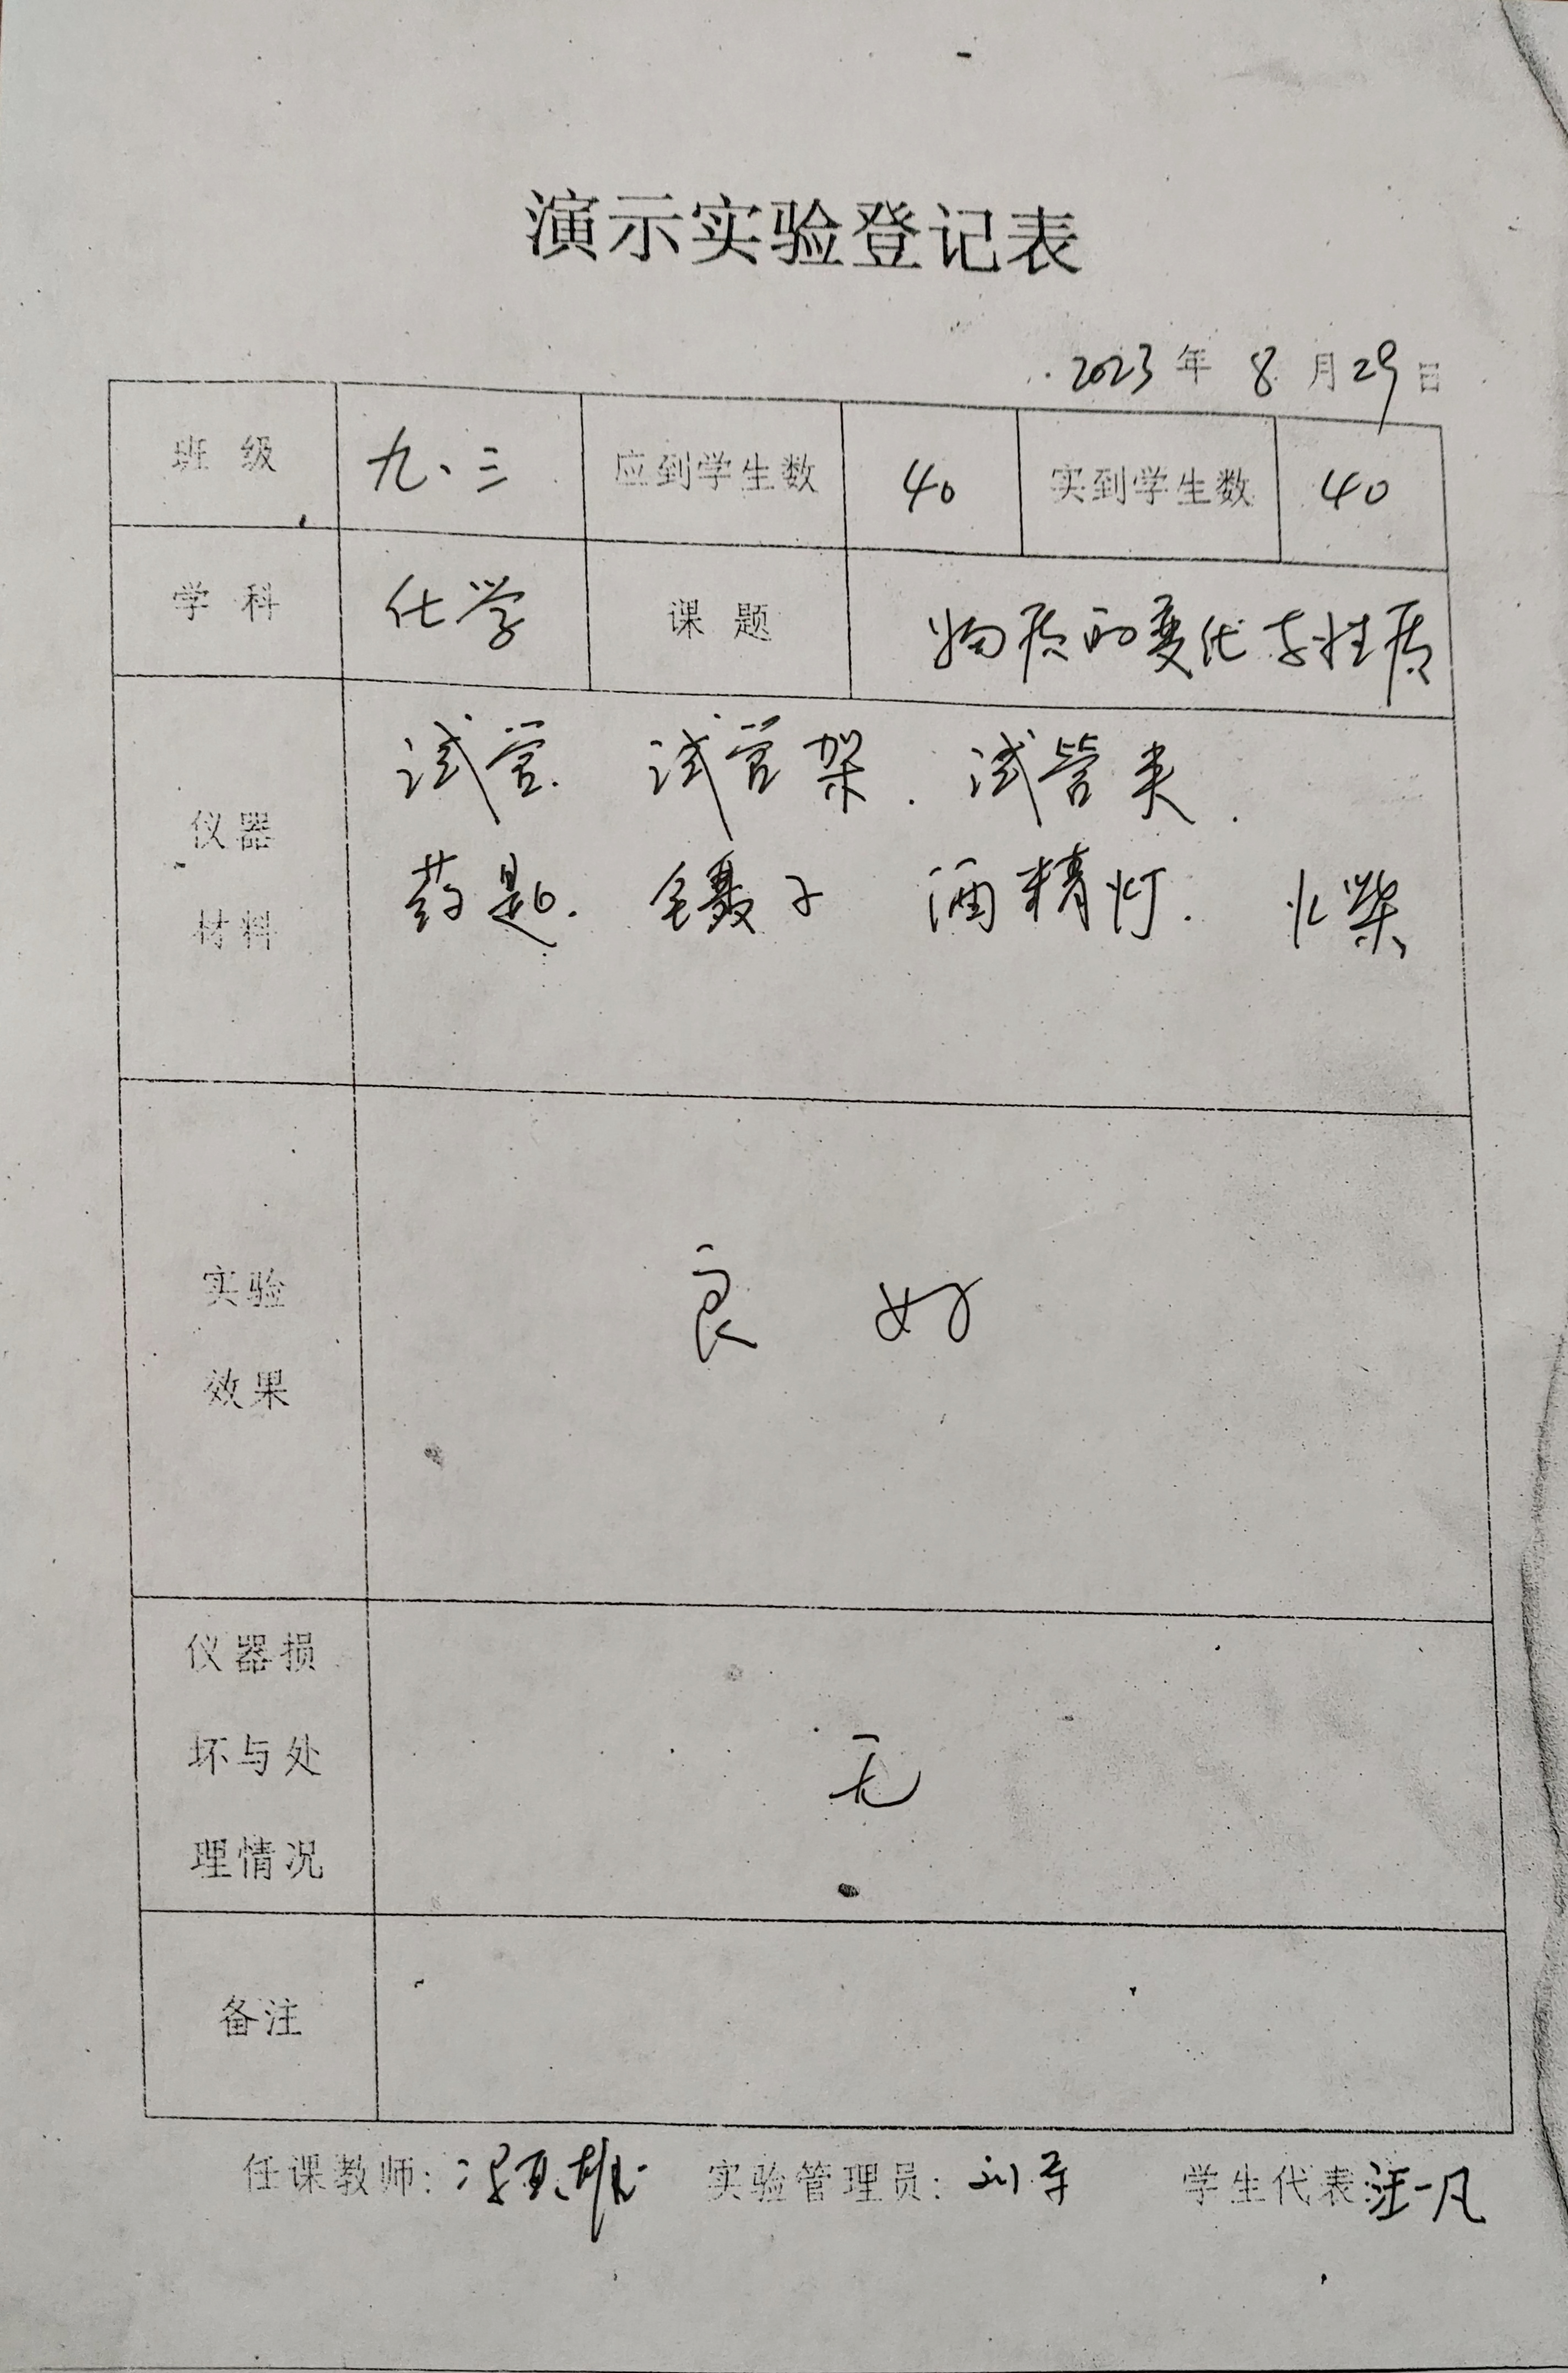 演示实验登记表
2023年8月29日
班级 九、三 应到学生数 40 实到学生数 40
学科 化学 课题 物质的变化与性质
仪器材料
试管. 试管架. 试管夹.
药匙. 镊子 酒精灯. 火柴
实验效果 良好
仪器损
坏与处 无
理情况
备注
任课教师: 实验管理员: 刘军 学生代表: 汪一凡